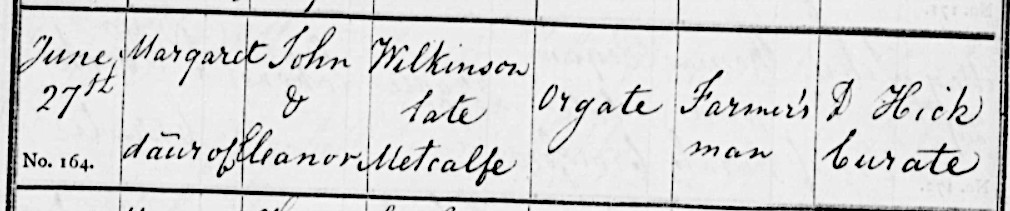 June 27st
No. 164.
Margaret
daur of
John
&
Eleanor
Wilkinson
late
Metcalfe
Orgate
Farmer's
man
D Hick
Curate